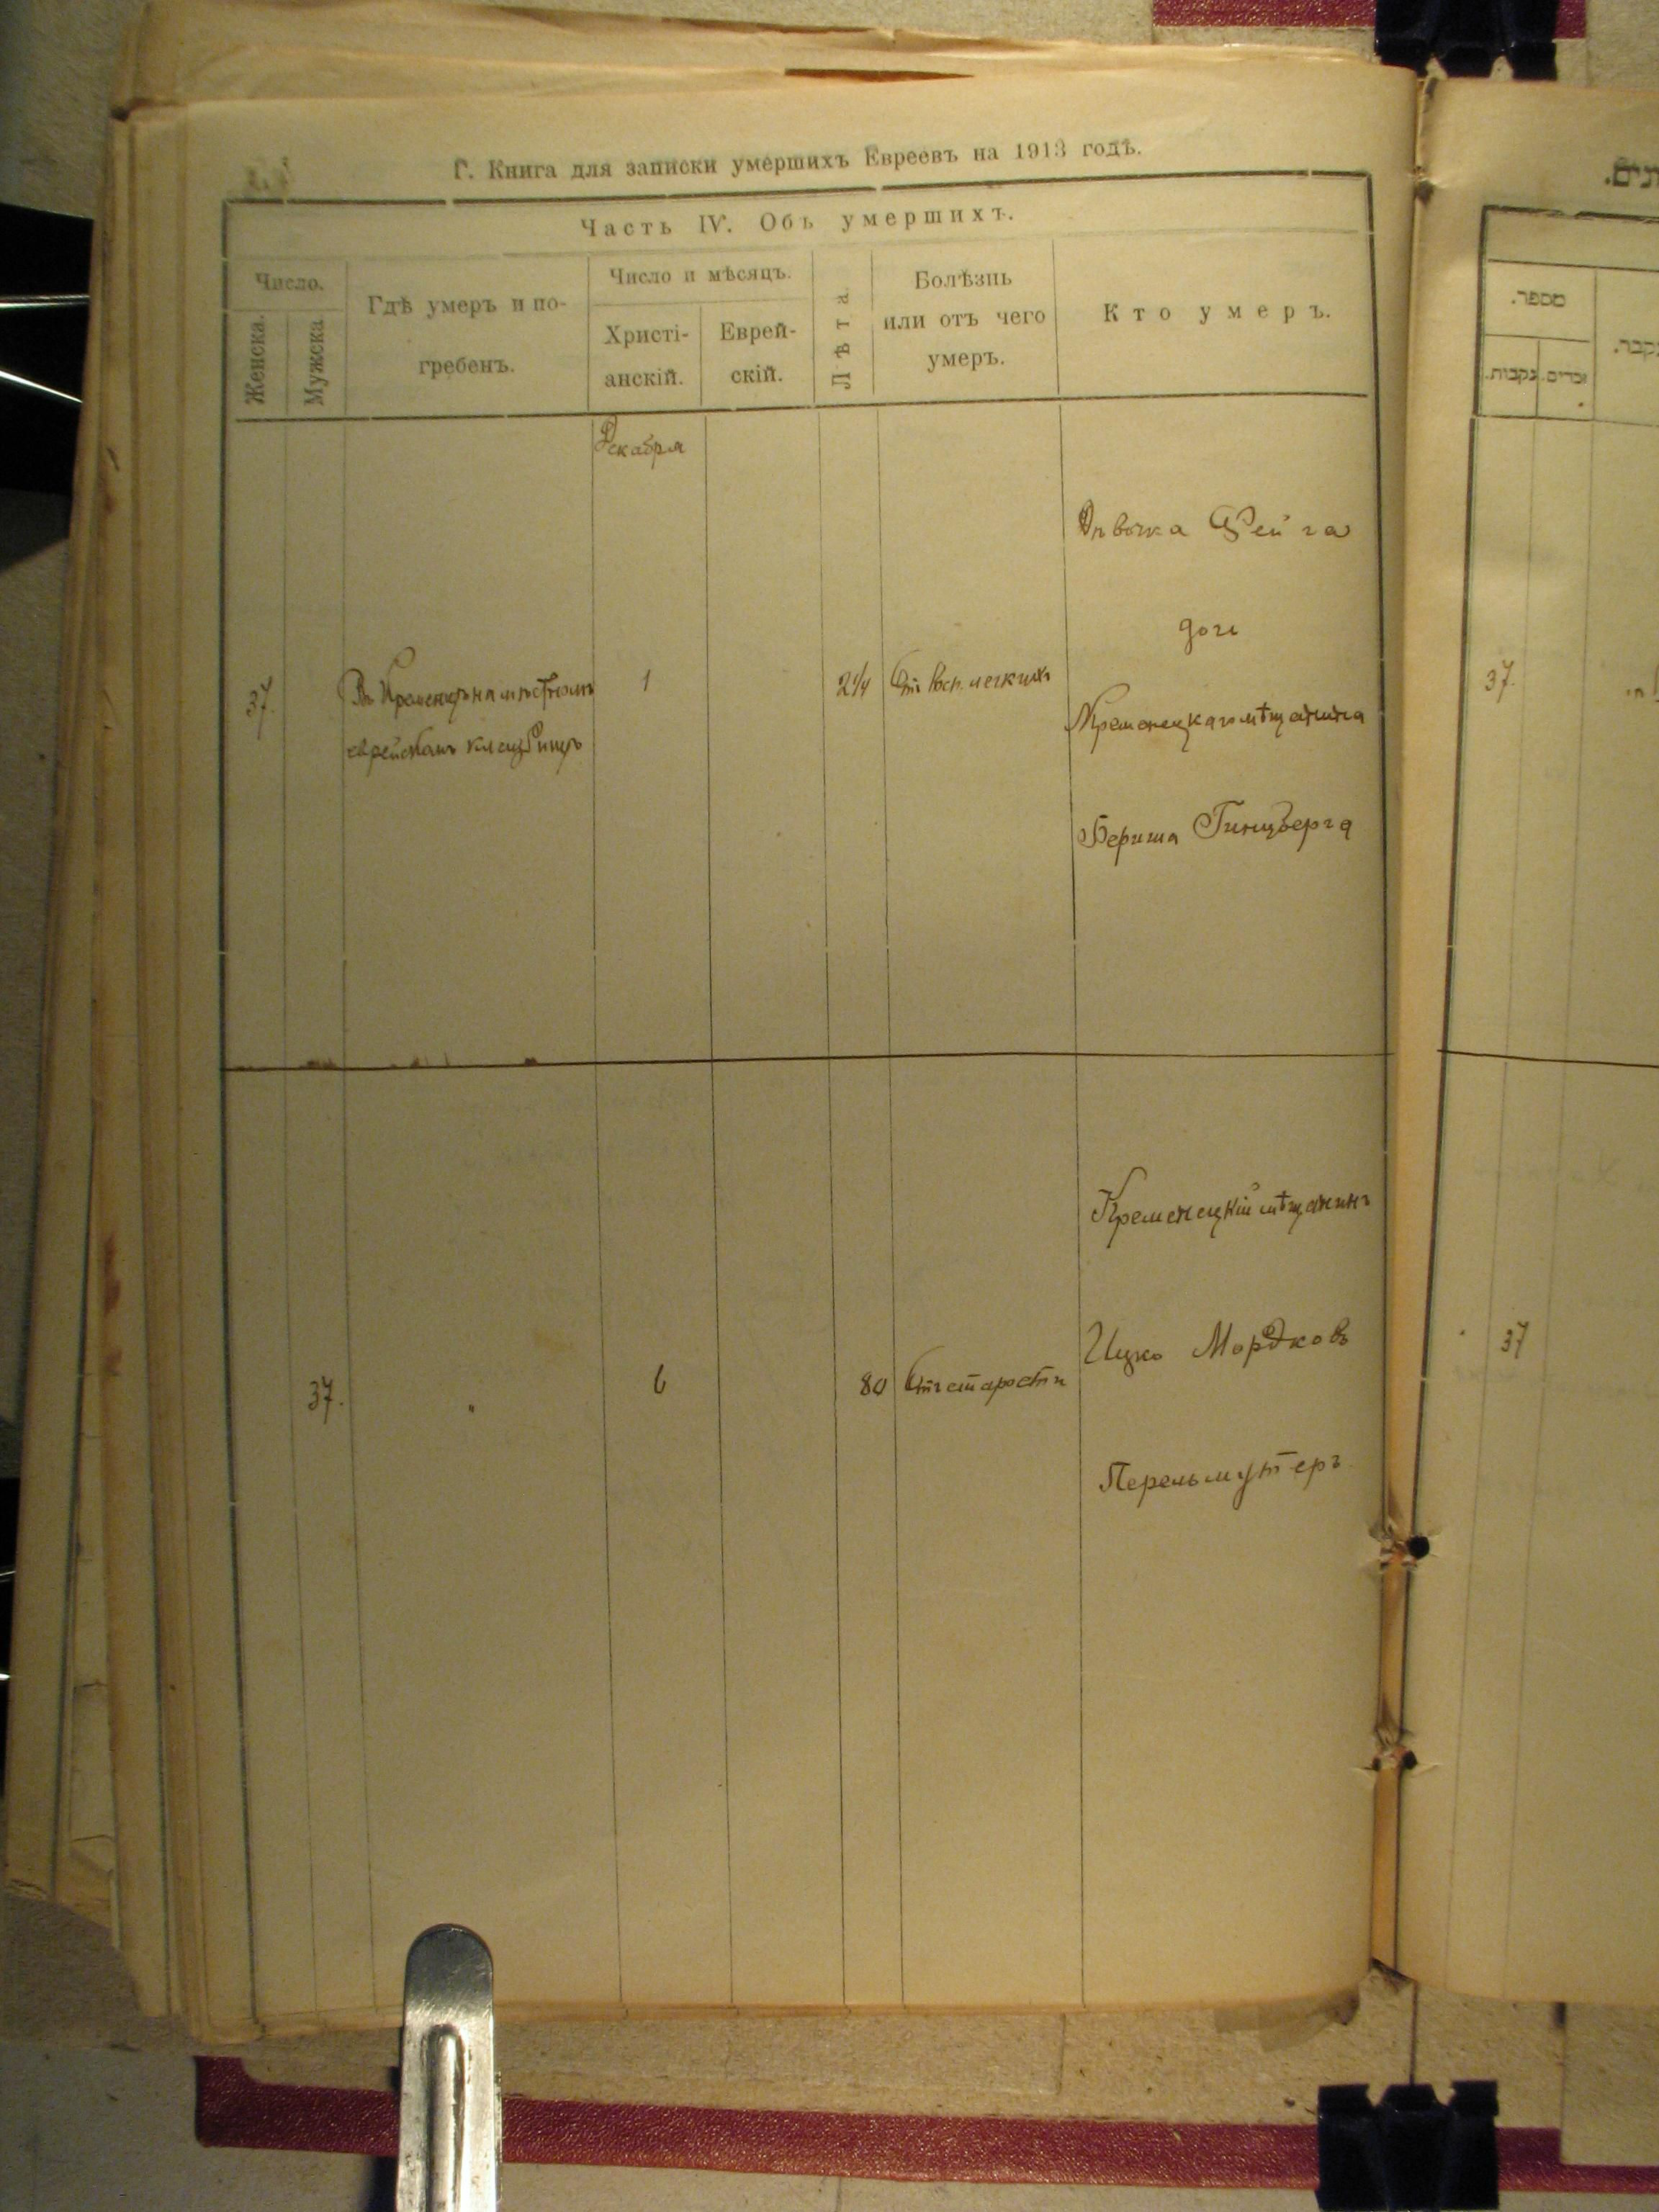 Г. Книга для записки умершихъ Евреевъ на 1913 годъ.
Часть IV. Объ умершихъ.
Число.
Женска.
Мужска
Гдѣ умеръ и по-
гребенъ.
Число и мѣсяцъ.
Христі-
анскій.
Еврей-
скій.
Лѣта.
Болѣзнь
или отъ чего
умеръ.
Кто умеръ.
Декабря
37.
Въ Кременцѣ на мѣстномъ
еврейскомъ кладбищѣ
1
2 1/4
От восп. легкихъ
Дѣвочка Фейга
дочь
Кременецкаго мѣщанина
Бериша Гинцберга
37.
"
6
80
Отъ старости
Кременецкій мѣщанинъ
Ицко Мордковъ
Перельмутеръ
מספר.
נקבות.
זכרים.
37.
37